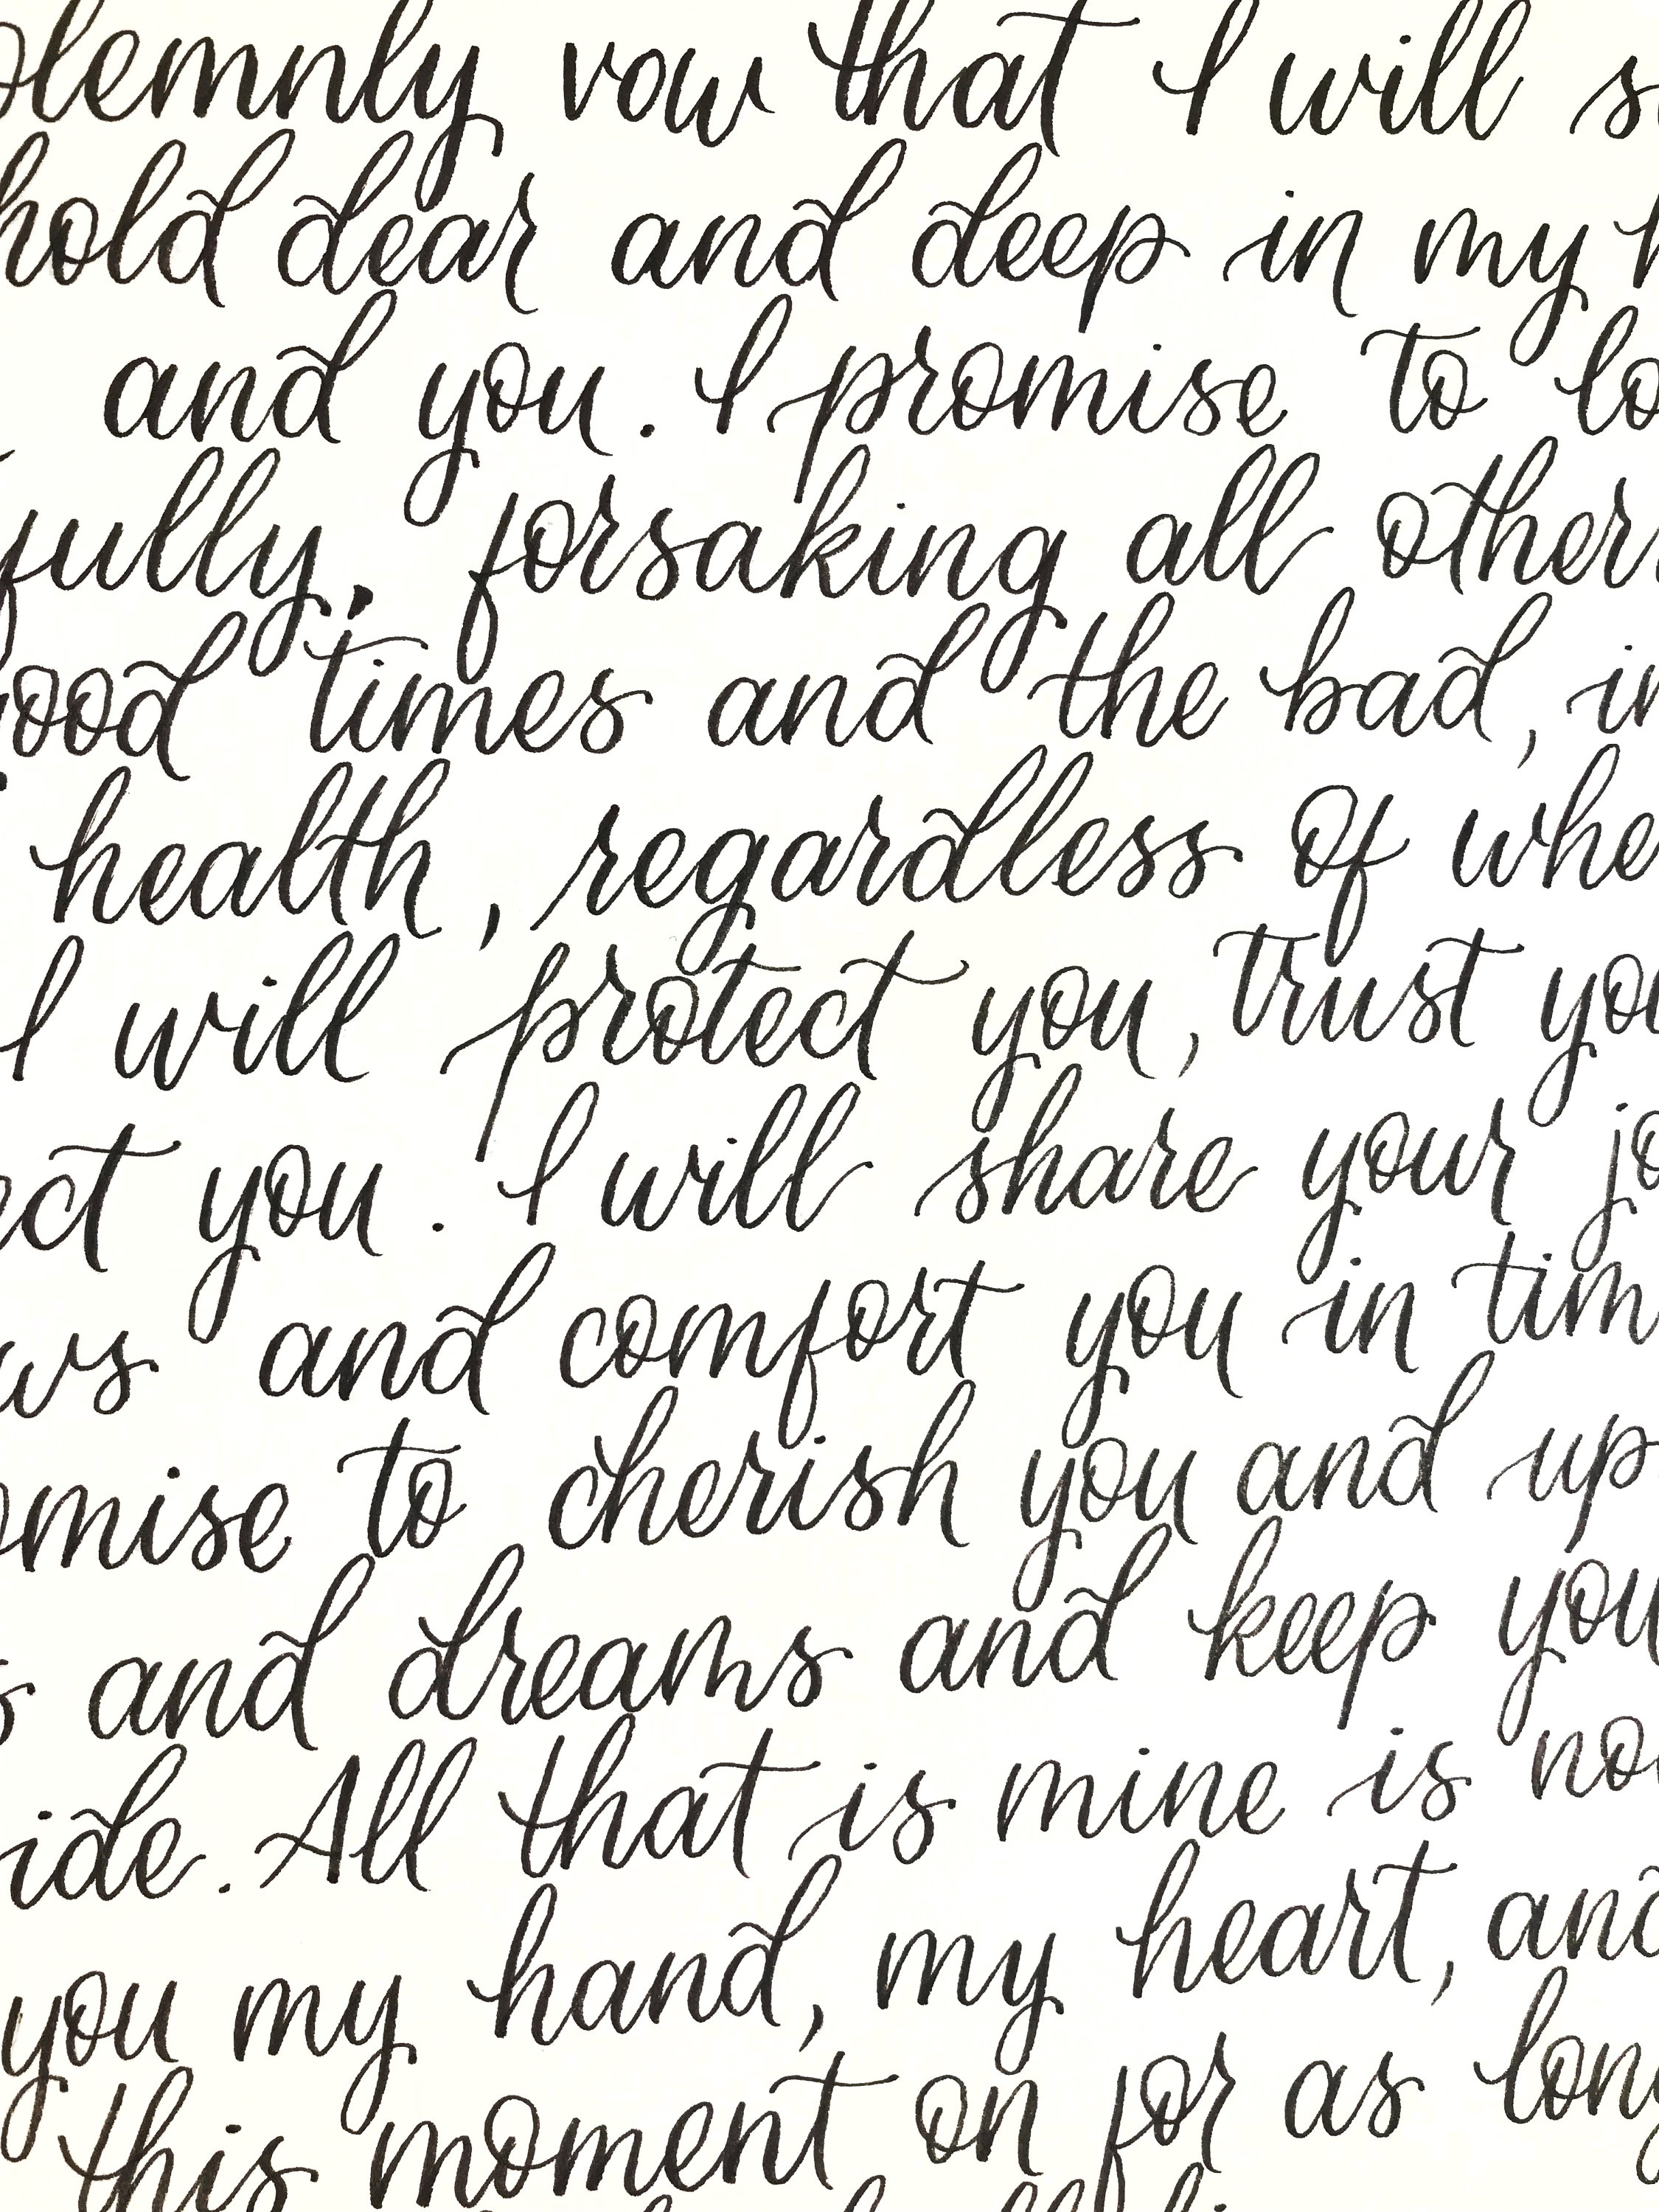 olemnly vow that I will s
hold dear and deep in my h
and you. I promise to lo
fully, forsaking all others
good times and the bad, in
health, regardless of whe
I will protect you, trust you
ect you. I will share your jo
ws and comfort you in tim
omise to cherish you and up
s and dreams and keep you
ide. All that is mine is no
you my hand, my heart, and
this moment on for as long